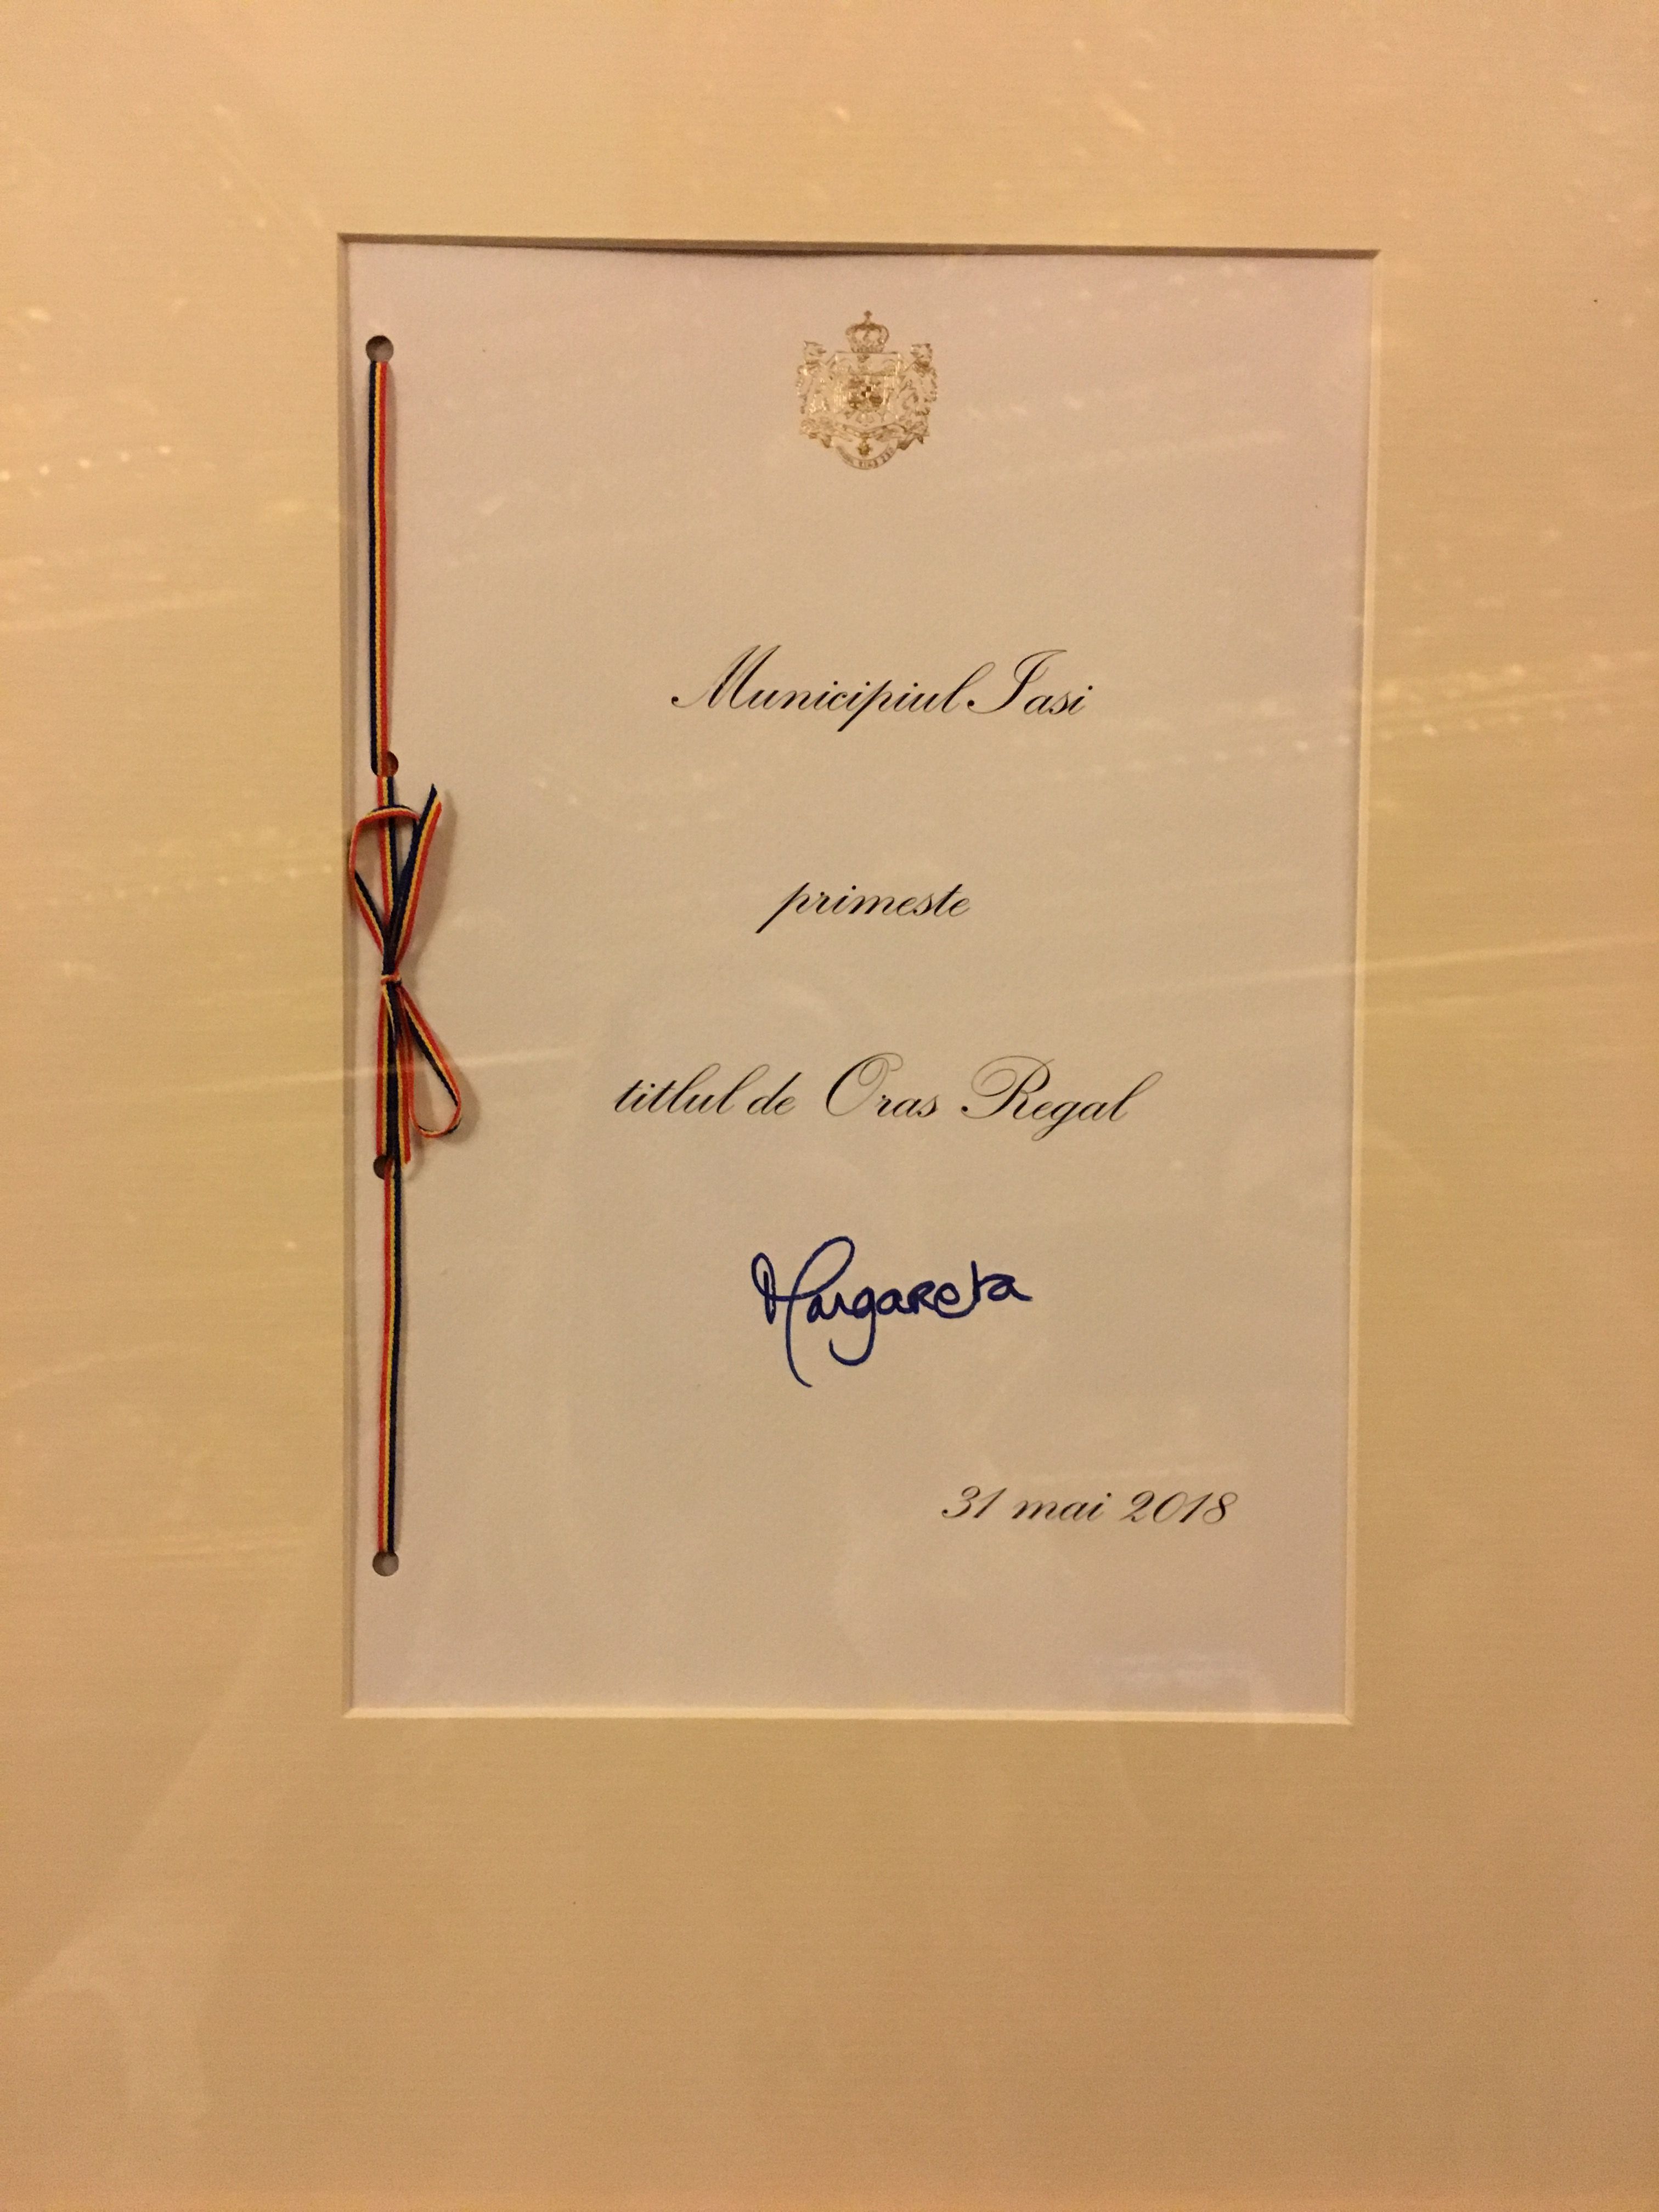 Municipiul Iasi
primeste
titlul de Oras Regal
Margareta
31 mai 2018